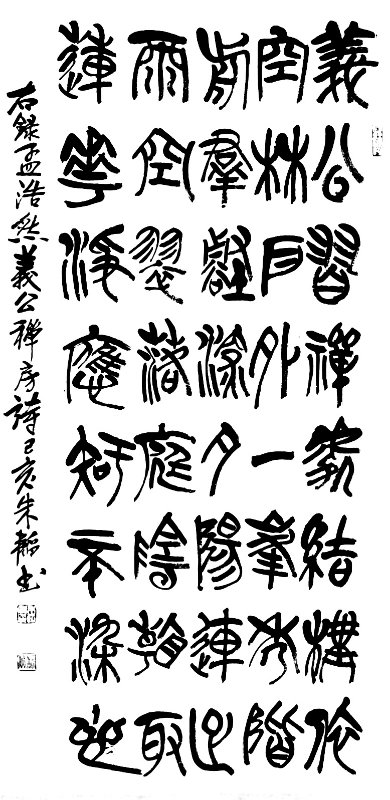 義公習禪寂結構依
空林戶外一峯秀階
前群壑深夕陽連足
雨空翠落庭陰看取
蓮花淨應知不染心
右錄孟浩然義公禪房詩己亥朱韜書